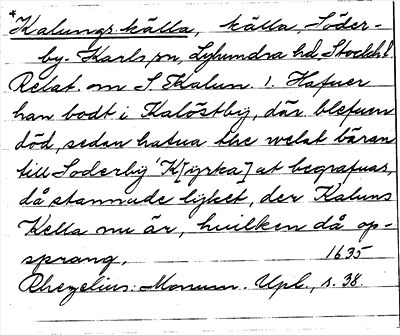 *Kalungs källa, källa, Söder-
by-Karls sn, Lyhundra hd, Stockh. l.
Relat. om S. Kalun. 1. Hafuer
han bodt i Kalöstby, där blefuen
död, sedan hafua the welat bäran
till Soderby K[yrka] at begrafuas,
då stannade lyket, der Kaluns
Kella nu är, huilken då op-
sprang, 1635
Rhezelius: Monum. Upl., s. 38.